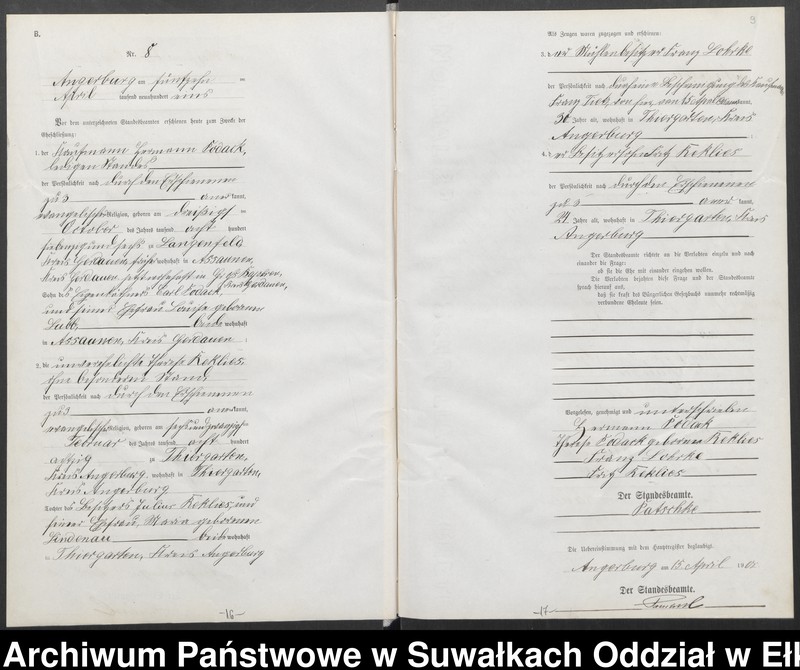 8.
Nr. 8
Angerburg am fünfzehn ten
April tausend neunhundert eins
Vor dem unterzeichneten Standesbeamten erschienen heute zum Zwecke der
Eheschließung:
1. der Kaufmann Hermann Podack,
ledigen Standes
der Persönlichkeit nach durch den Erschienenen
zu 3 anerkannt,
evangelischer Religion, geboren am dreißigsten
October des Jahres tausend acht hundert
siebenzig und sechs zu Langenfeld
Kreis Gerdauen, wohnhaft in Assaunen,
Kreis Gerdauen
Kreis Gerdauen,
Sohn des Eigenkäthners Carl Podack,
und seiner Ehefrau Louise geborenen
beide wohnhaft
in Assaunen, Kreis Gerdauen;
2. die unverehelichte Therese Keklies,
ohne besonderen Stand,
der Persönlichkeit nach durch den Erschienenen
zu 3 anerkannt,
evangelischer Religion, geboren am sechsundzwanzigsten
Februar des Jahres tausend acht hundert
achtzig zu Thiergarten,
Kreis Angerburg, wohnhaft in Thiergarten,
Kreis Angerburg
Tochter des Besitzers Julius Keklies, und
seiner Ehefrau, Maria geborenen
Lindenau beide wohnhaft
in Thiergarten, Kreis Angerburg
-16-
9
Als Zeugen waren zugezogen und erschienen:
3. der Mühlenbesitzer Franz Lohrke
der Persönlichkeit nach durch eine Bescheinigung des Kaufmanns
Franz von hier vom 15 April anerkannt,
30 Jahre alt, wohnhaft in Thiergarten, Kreis
Angerburg;
4. der Besitzersohn Fritz Keklies
der Persönlichkeit nach durch den Erschienenen
zu 3 anerkannt,
24 Jahre alt, wohnhaft in Thiergarten, Kreis
Angerburg
Der Standesbeamte richtete an die Verlobten einzeln und nach
einander die Frage:
ob sie die Ehe mit einander eingehen wollen.
Die Verlobten bejahten diese Frage und der Standesbeamte
sprach hierauf aus,
daß sie kraft des Bürgerlichen Gesetzbuchs nunmehr rechtmäßig
verbundene Eheleute seien.
Vorgelesen, genehmigt und unterschrieben
Hermann Podak
Therese Podack geborene Keklies
Franz Lohrke
Fritz Keklies
Der Standesbeamte.
Patschke
Die Uebereinstimmung mit dem Hauptregister beglaubigt.
Angerburg am 15. April 1901
Der Standesbeamte.
-17-
Archiwum Państwowe w Suwałkach Oddział w Eł